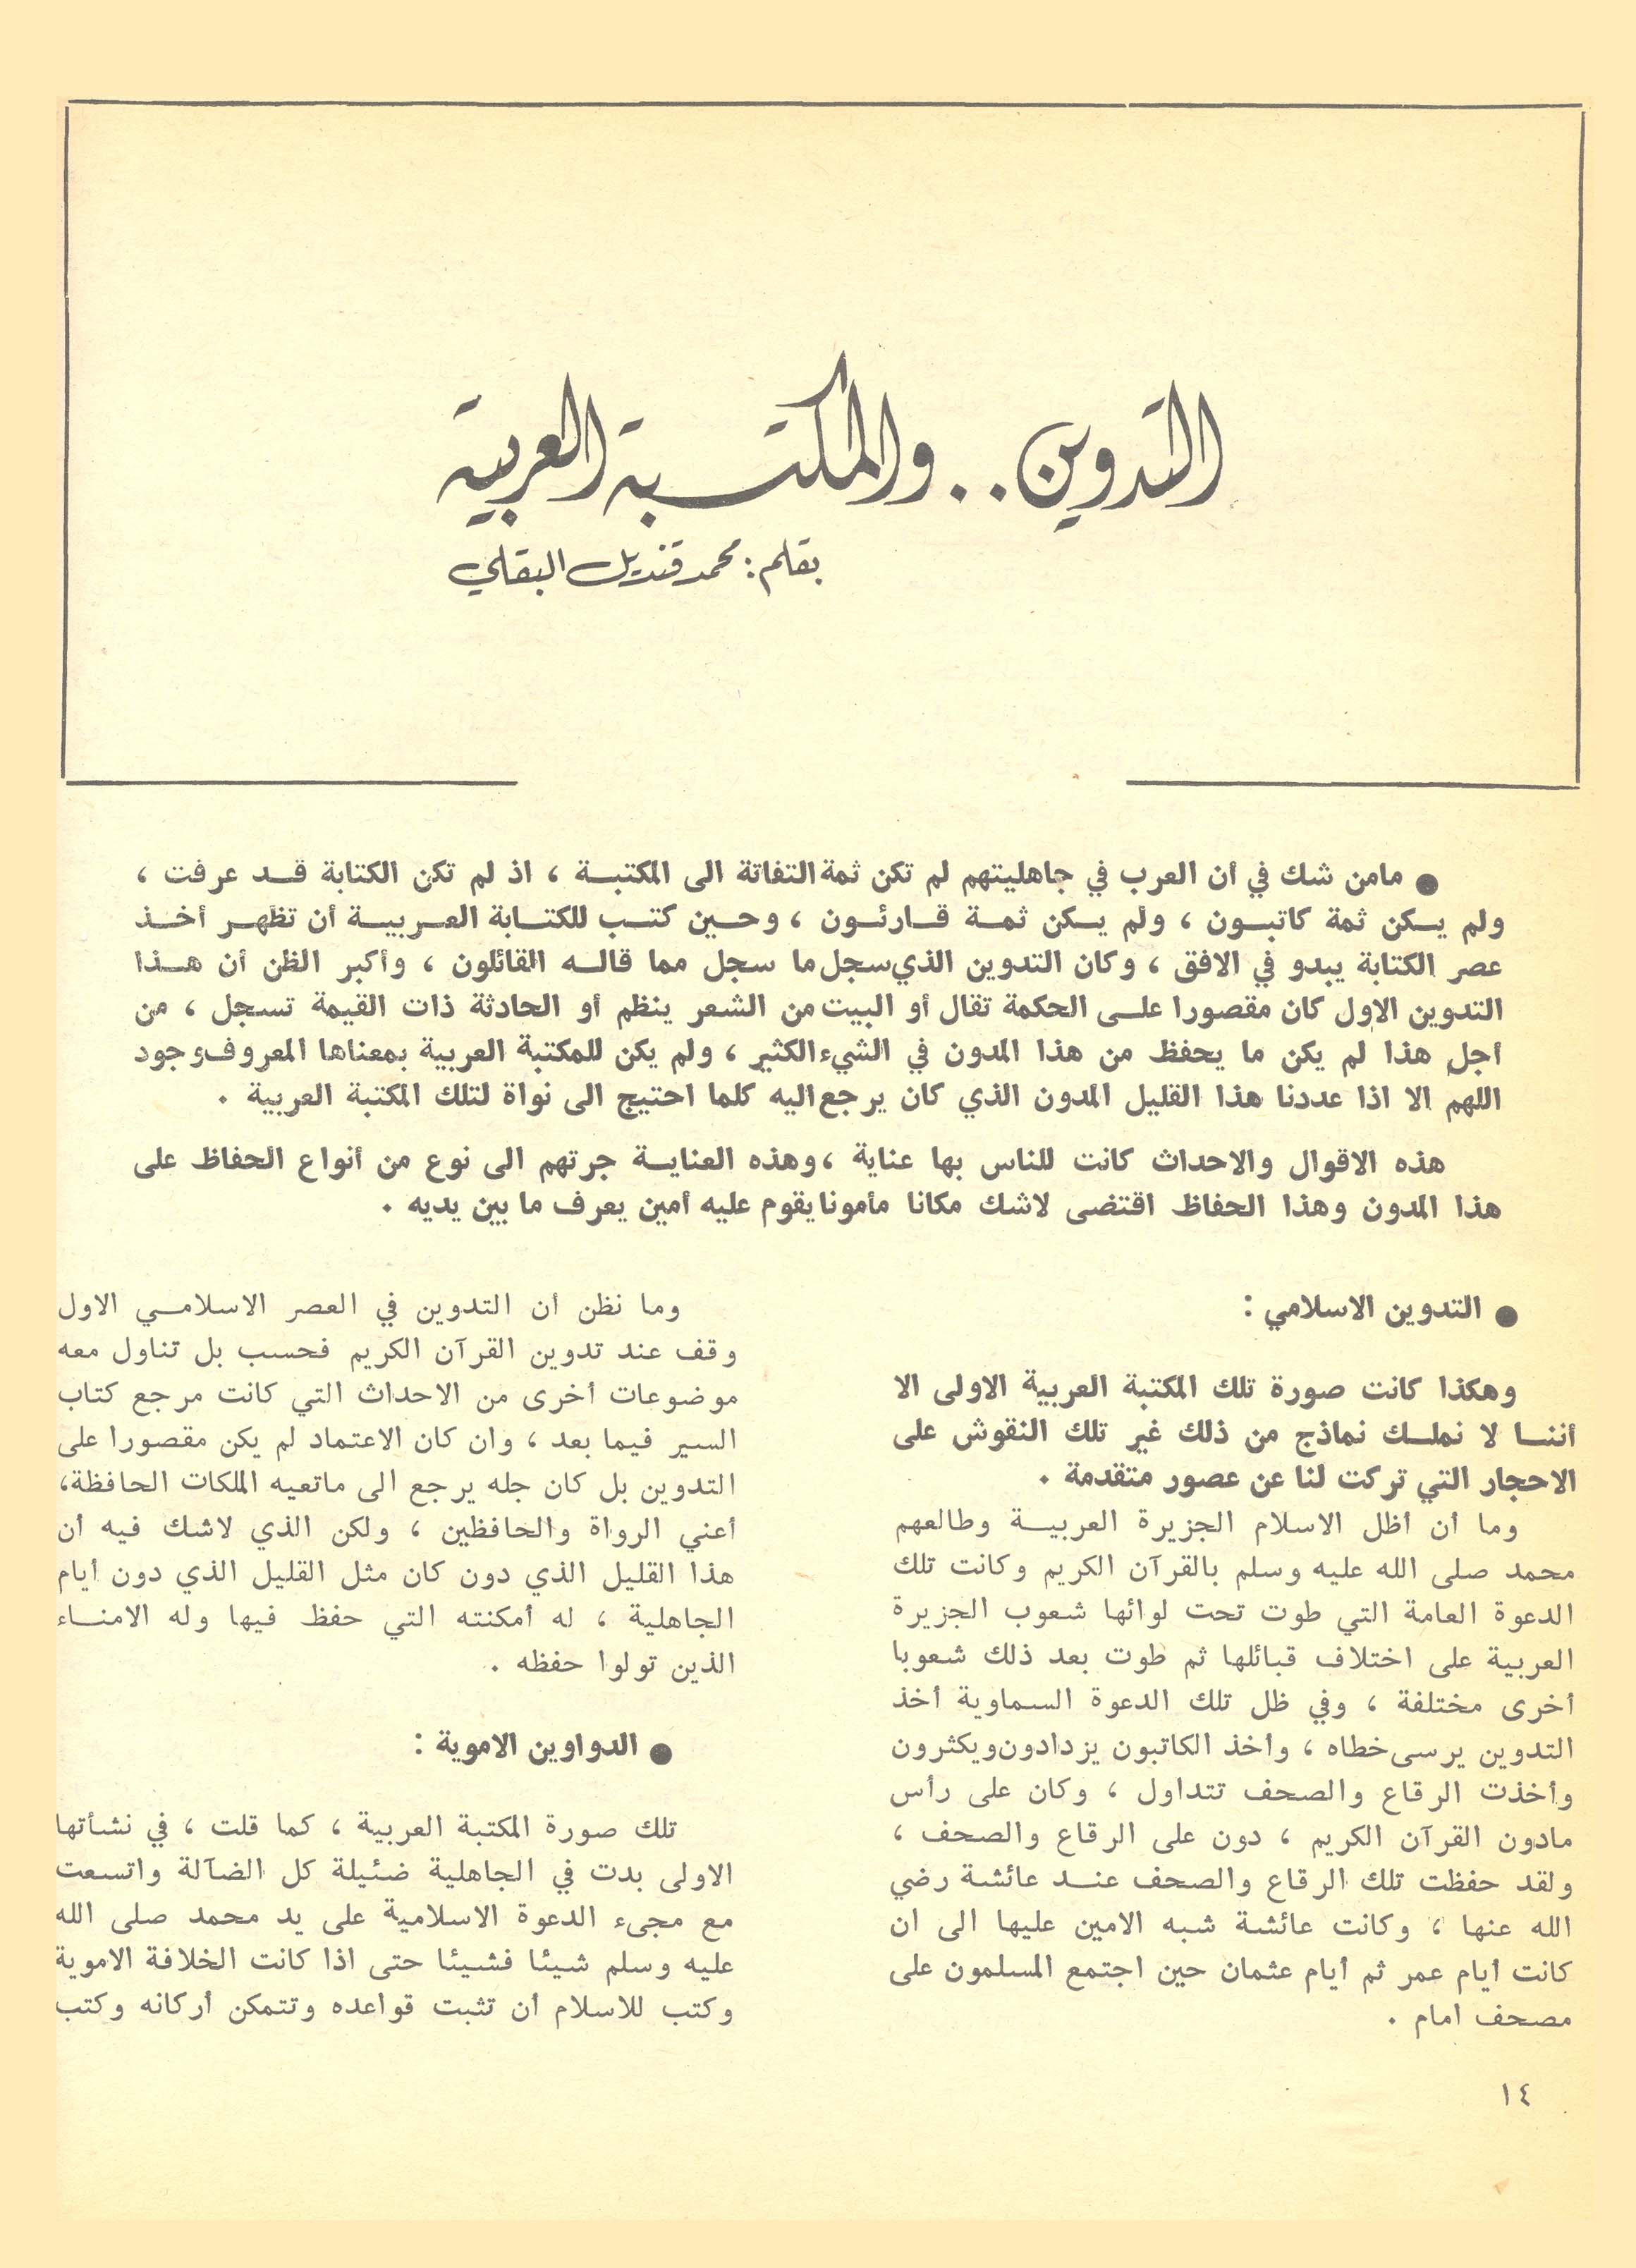 التدوين .. والمكتبة العربية
بقلم : محمد قنديل البقلي
● مامن شك في أن العرب في جاهليتهم لم تكن ثمة التفاتة الى المكتبة ، اذ لم تكن الكتابة قد عرفت ،
ولم يكن ثمة كاتبون ، ولم يكن ثمة قارئون ، وحين كتب للكتابة العربية أن تظهر أخذ
عصر الكتابة يبدو في الافق ، وكان التدوين الذي سجل ما سجل مما قاله القائلون ، وأكبر الظن أن هذا
التدوين الاول كان مقصورا على الحكمة تقال أو البيت من الشعر ينظم أو الحادثة ذات القيمة تسجل ، من
أجل هذا لم يكن ما يحفظ من هذا المدون في الشيء الكثير ، ولم يكن للمكتبة العربية بمعناها المعروف وجود
اللهم الا اذا عددنا هذا القليل المدون الذي كان يرجع اليه كلما احتيج الى نواة لتلك المكتبة العربية .
هذه الاقوال والاحداث كانت للناس بها عناية ، وهذه العناية جرتهم الى نوع من أنواع الحفاظ على
هذا المدون وهذا الحفاظ اقتضى لاشك مكانا مأمونا يقوم عليه أمين يعرف ما بين يديه .
● التدوين الاسلامي :
وهكذا كانت صورة تلك المكتبة العربية الاولى الا
أننا لا نملك نماذج من ذلك غير تلك النقوش على
الاحجار التي تركت لنا عن عصور متقدمة .
وما أن أظل الاسلام الجزيرة العربية وطالعهم
محمد صلى الله عليه وسلم بالقرآن الكريم وكانت تلك
الدعوة العامة التي طوت تحت لوائها شعوب الجزيرة
العربية على اختلاف قبائلها ثم طوت بعد ذلك شعوبا
أخرى مختلفة ، وفي ظل تلك الدعوة السماوية أخذ
التدوين يرسى خطاه ، وأخذ الكاتبون يزدادون ويكثرون
وأخذت الرقاع والصحف تتداول ، وكان على رأس
مادون القرآن الكريم ، دون على الرقاع والصحف ،
ولقد حفظت تلك الرقاع والصحف عند عائشة رضي
الله عنها ، وكانت عائشة شبه الامين عليها الى ان
كانت أيام عمر ثم أيام عثمان حين اجتمع المسلمون على
مصحف امام .
وما نظن أن التدوين في العصر الاسلامي الاول
وقف عند تدوين القرآن الكريم فحسب بل تناول معه
موضوعات أخرى من الاحداث التي كانت مرجع كتاب
السير فيما بعد ، وان كان الاعتماد لم يكن مقصورا على
التدوين بل كان جله يرجع الى ماتعيه الملكات الحافظة،
أعني الرواة والحافظين ، ولكن الذي لاشك فيه أن
هذا القليل الذي دون كان مثل القليل الذي دون أيام
الجاهلية ، له أمكنته التي حفظ فيها وله الامناء
الذين تولوا حفظه .
● الدواوين الاموية :
تلك صورة المكتبة العربية ، كما قلت ، في نشأتها
الاولى بدت في الجاهلية ضئيلة كل الضآلة واتسعت
مع مجىء الدعوة الاسلامية على يد محمد صلى الله
عليه وسلم شيئا فشيئا حتى اذا كانت الخلافة الاموية
وكتب للاسلام أن تثبت قواعده وتتمكن أركانه وكتب
١٤